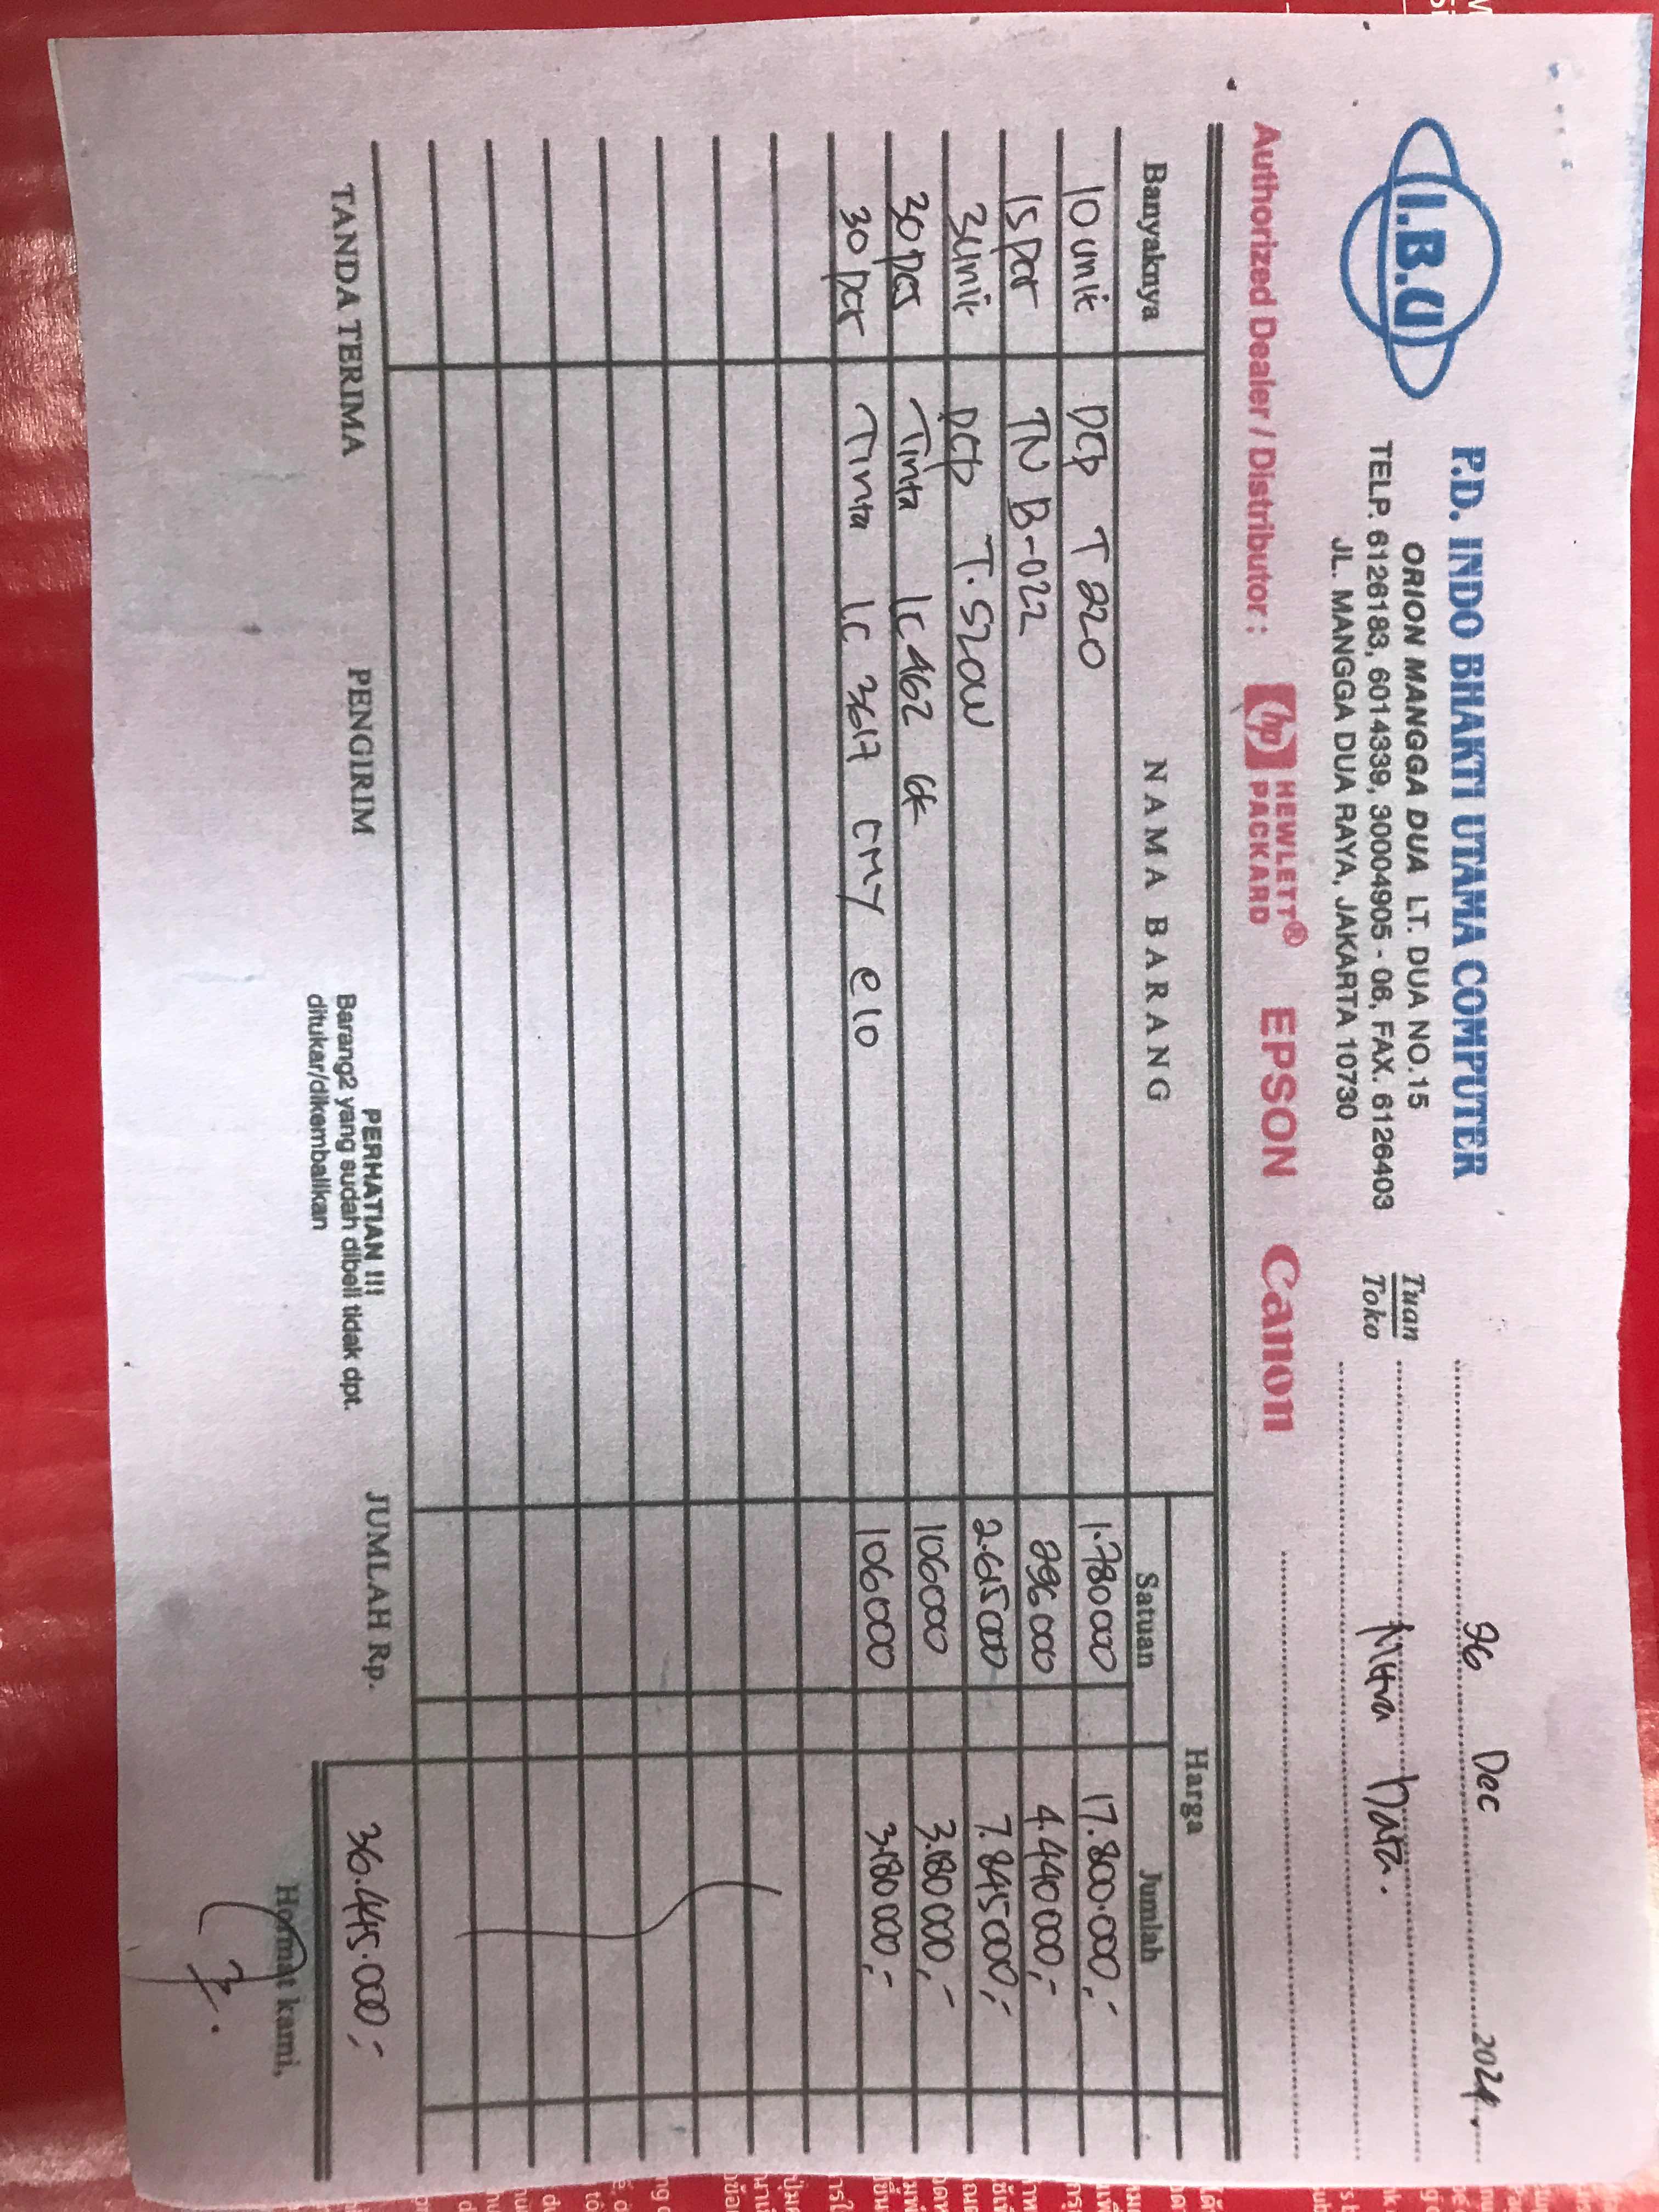 I.B.U
P.D. INDO BHAKTI UTAMA COMPUTER
ORION MANGGA DUA LT. DUA NO.15
TELP. 6126183, 6014339, 30004905 - 06, FAX. 6126403
JL. MANGGA DUA RAYA, JAKARTA 10730
26 Dec 2024.
Tuan
Toko
Mitra Data.
Authorized Dealer / Distributor : hp HEWLETT® PACKARD EPSON Canon
Banyaknya NAMA BARANG Harga
Satuan Jumlah
10 unit DCP T 220 1.780000 17.800.000,-
15 pcs TN B-022 296000 4.440000,-
3 unit DCP T.520W 2.615000 7.845000,-
30 pcs Tinta lc 462 106000 3.180000,-
30 pcs Tinta lc 3617 CMY e10 106000 3.180000,-
TANDA TERIMA PENGIRIM
PERHATIAN !!!
Barang2 yang sudah dibeli tidak dpt.
ditukar/dikembalikan
JUMLAH Rp. 36.445.000,-
Hormat kami,